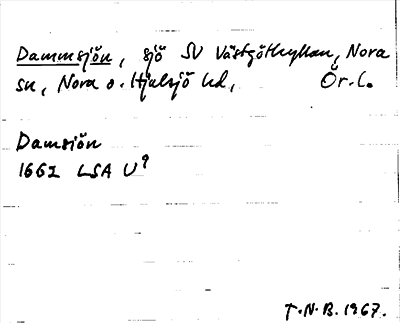 Dammsjön, sjö SV Västgöthyttan, Nora
sn, Nora o. Hjulsjö hd, Ör. l.
Damsiön
1661 LSA U⁹
T.N.B. 1967.